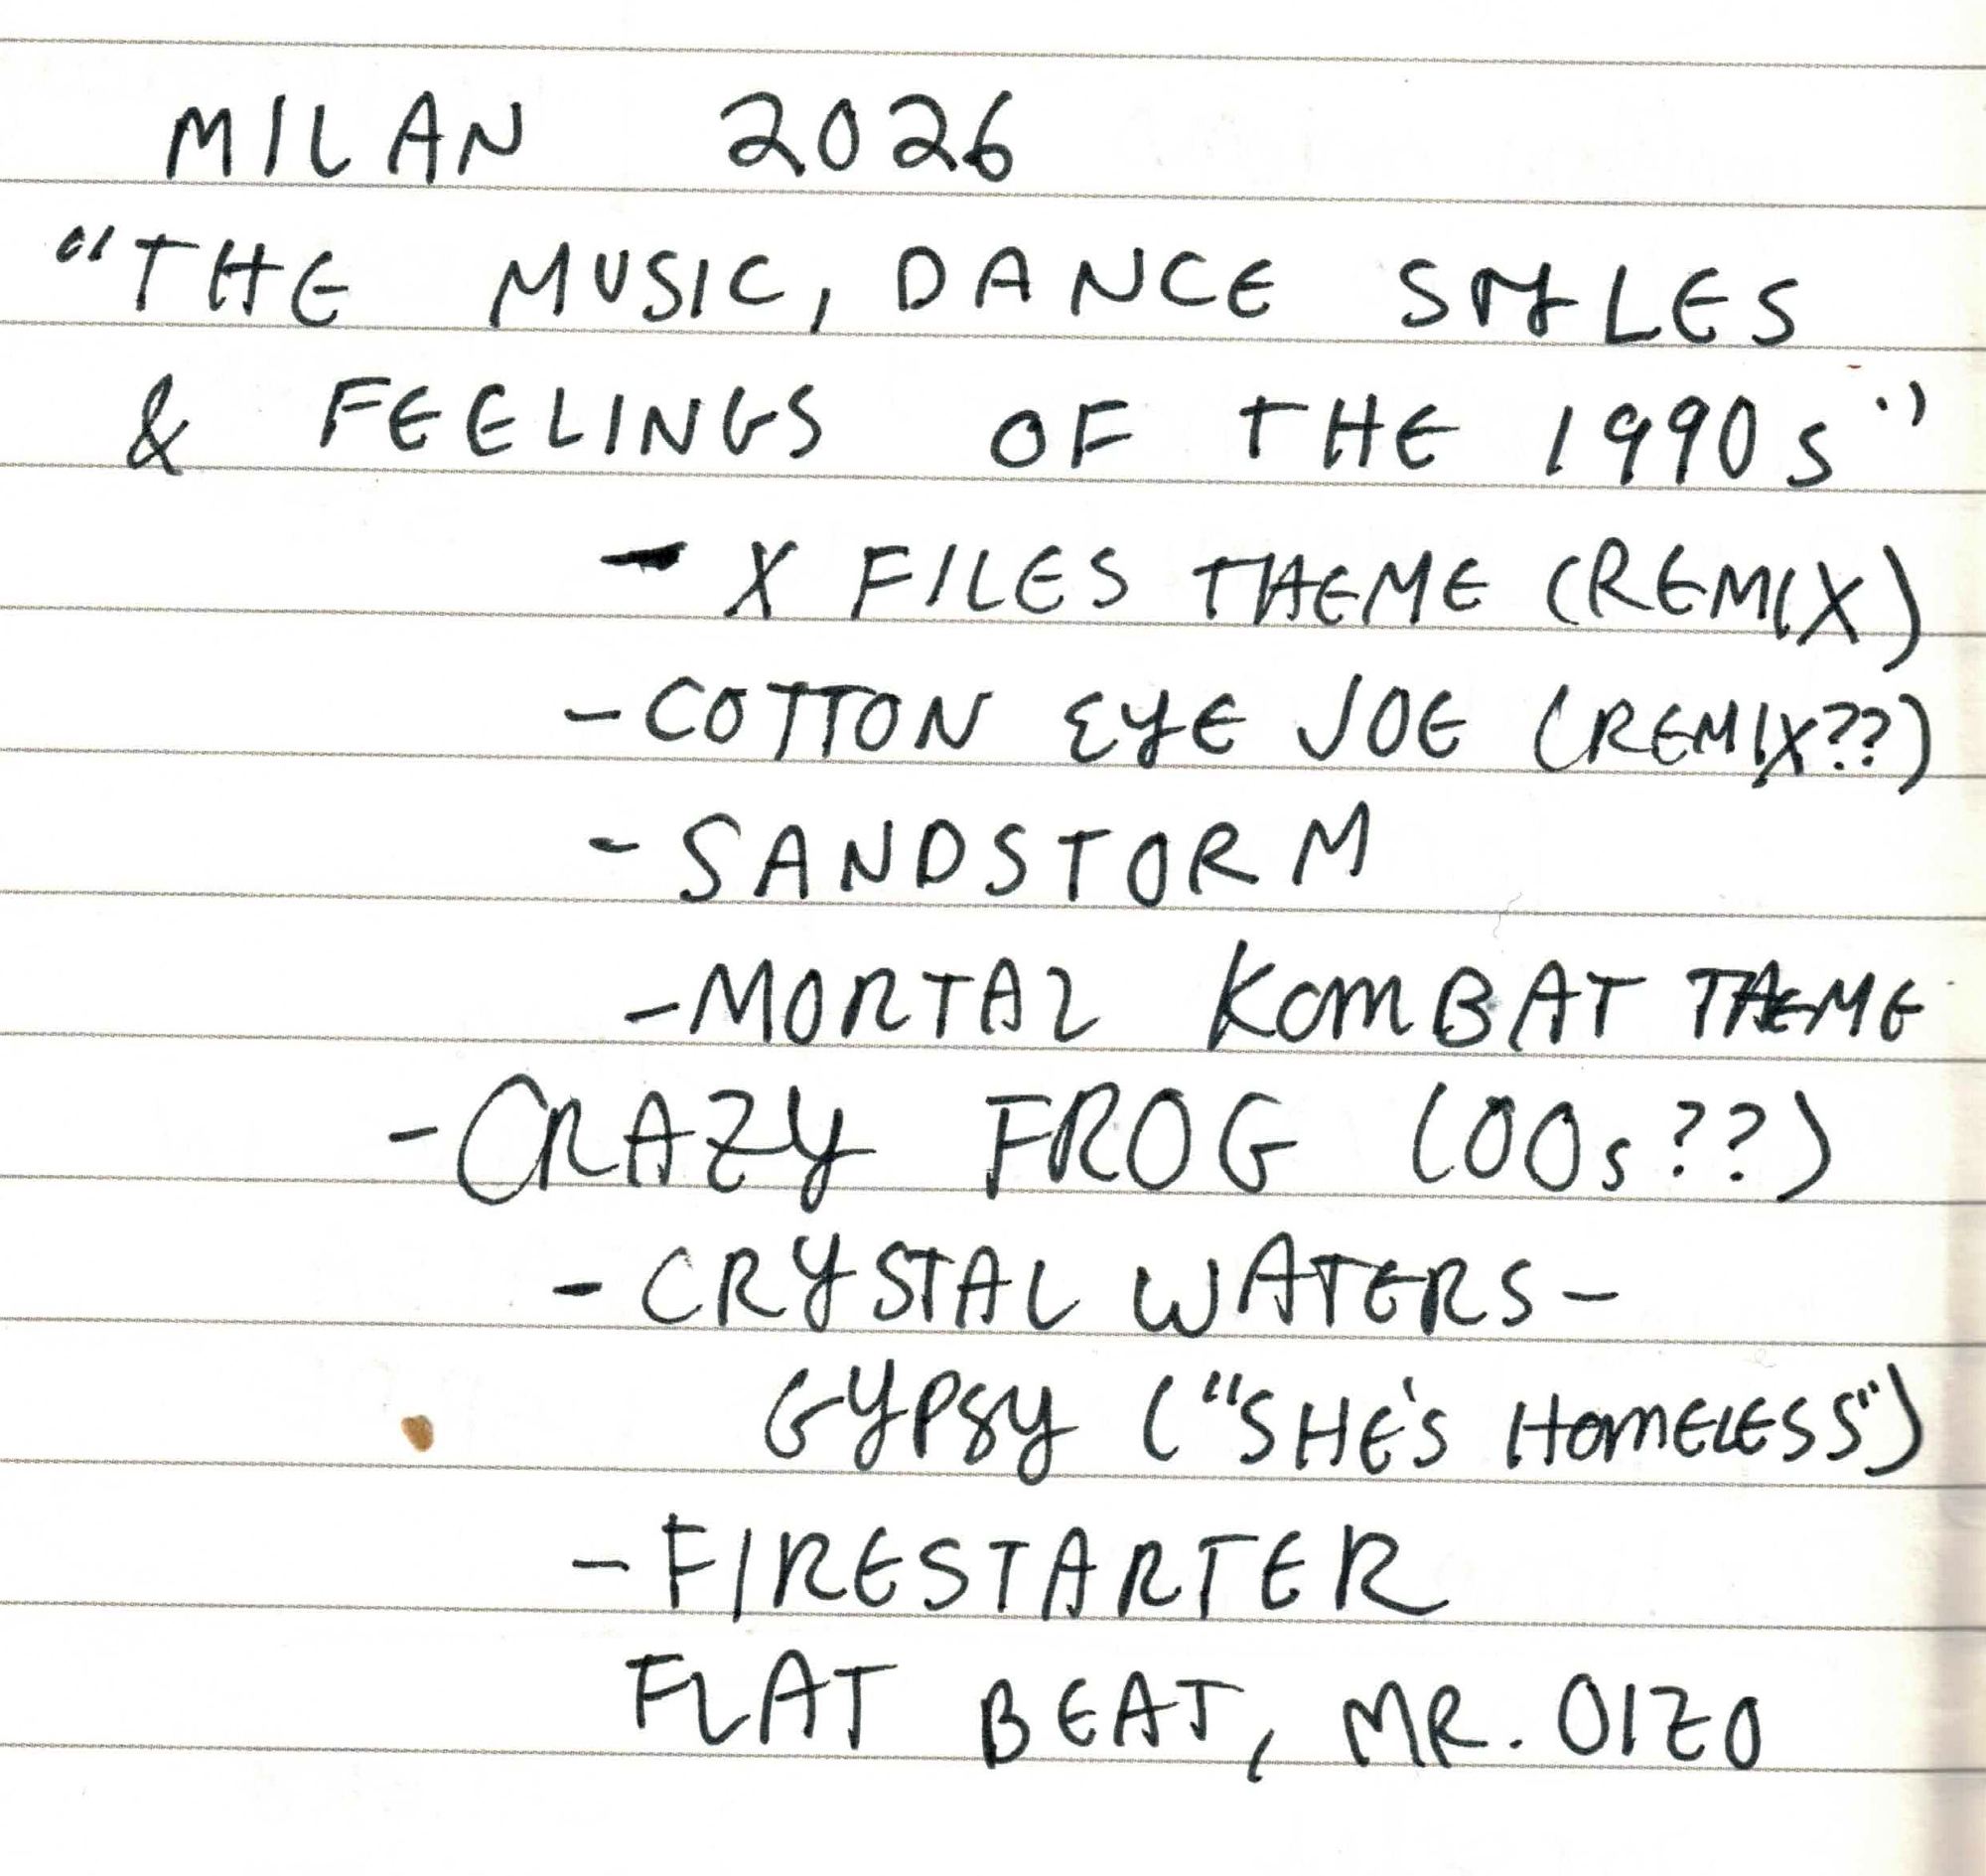 MILAN 2026
"THE MUSIC, DANCE STYLES
& FEELINGS OF THE 1990s"
- X FILES THEME (REMIX)
- COTTON EYE JOE (REMIX??)
- SANDSTORM
- MORTAL KOMBAT THEME
- CRAZY FROG (00s??)
- CRYSTAL WATERS -
GYPSY ("SHE'S HOMELESS")
- FIRESTARTER
FLAT BEAT, MR. OIZO